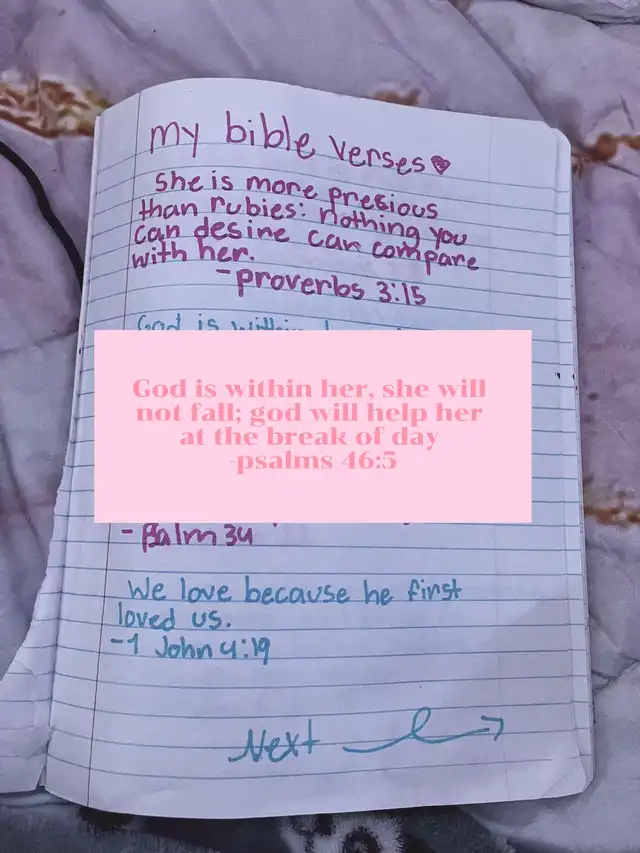 my bible verses
She is more presious
than rubies: nothing you
can desire can compare
with her.
-proverbs 3:15
God is within
God is within her, she will
not fall; god will help her
at the break of day
-psalms 46:5
- Psalm 34
We love because he first
loved us.
-1 John 4:19
Next